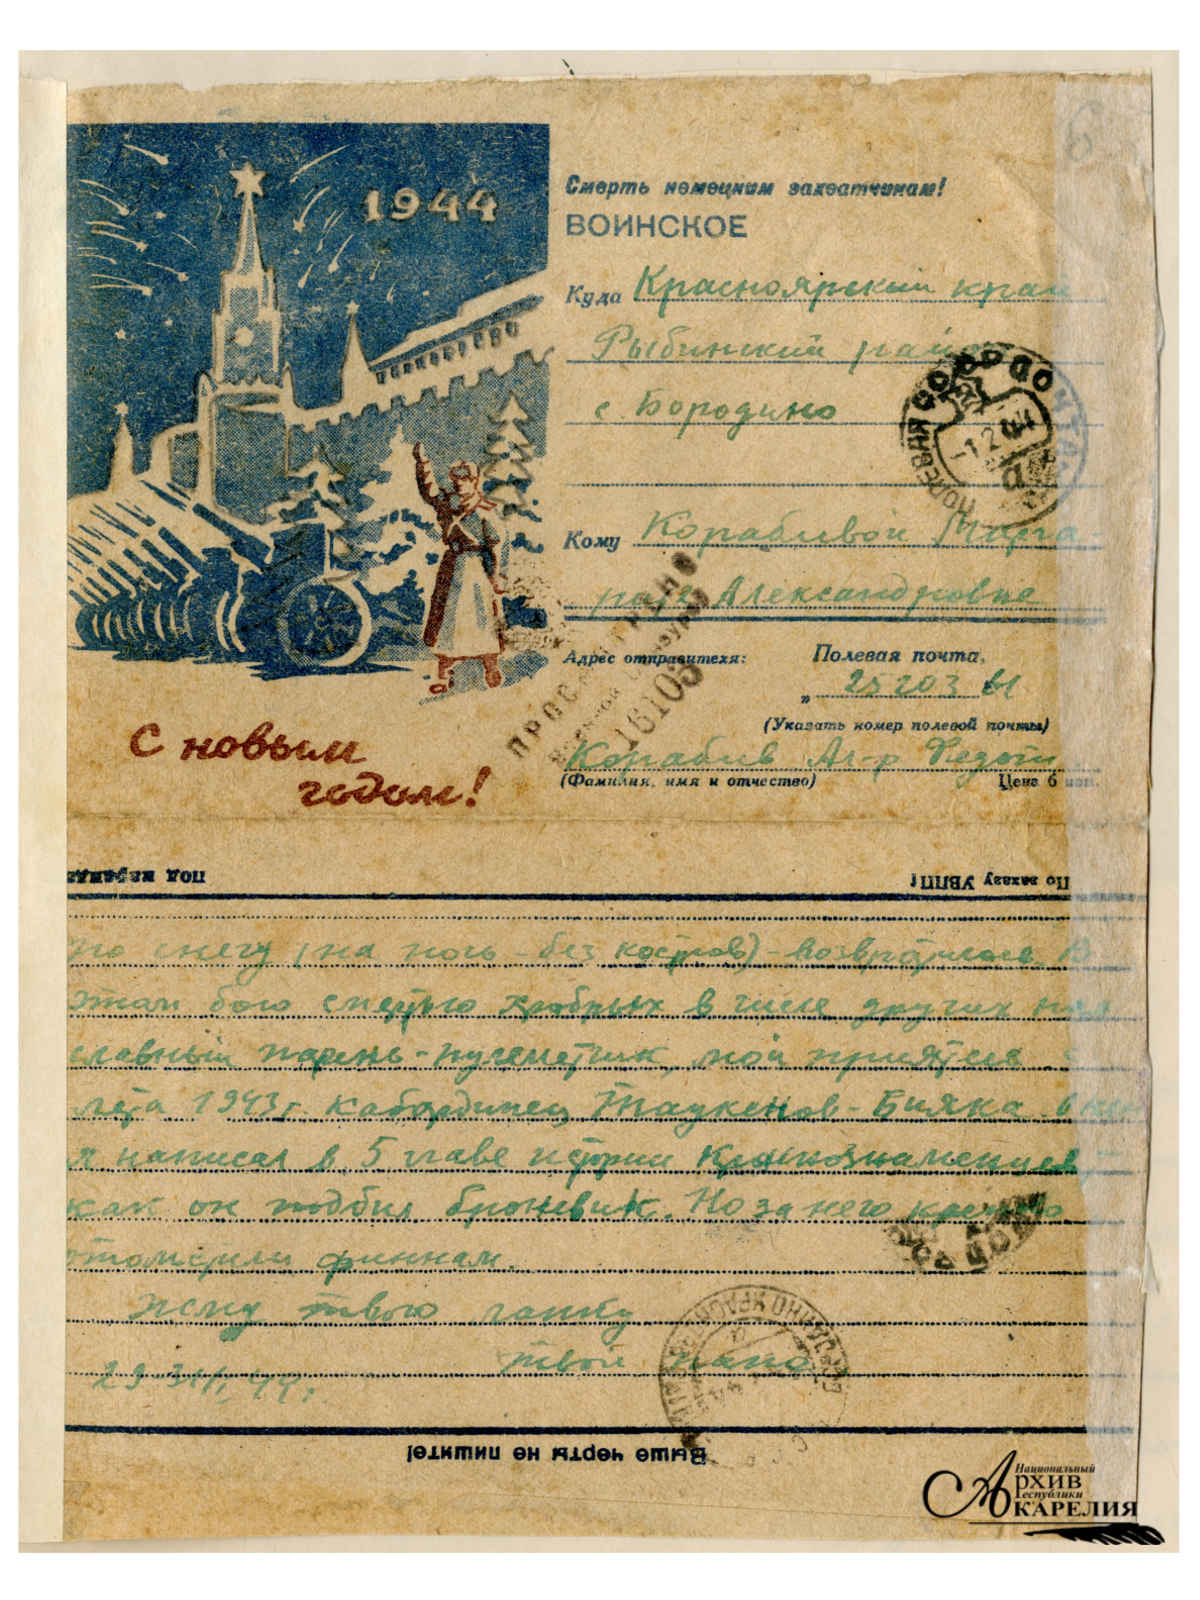 1944
Смерть немецким захватчикам!
ВОИНСКОЕ
Куда Красноярский край
Рыбинский район
с. Бородино
ПОЛЕВАЯ ПОЧТА
1 2 44
Кому Корабливой Марга-
рите Александровне
ПРОСМОТРЕНО
Военной Цензурой
16105
Адрес отправителя:
Полевая почта,
" 25203 И
(Указать номер полевой почты)
Кораблев Ал-р Федот
(Фамилия, имя и отчество) Цена 6 коп.
С новым
годом!
По заказу УВПП!
по снегу (на ночь - без костров) - возвратилось. В
этом бою смертью храбрых в числе других пал
славный парень-пулеметчик, мой приятель с
лета 1943 г. кабардинец Таукенов-Бияка. О ком
я написал в 5 главе истории Краснознаменцев
как он подбил броневик. Но за него крепко
отомстили финнам.
Жму твою лапку
твой папа
29-31/I, 44 г.
Выше черты не пишите!
Национальный
АРХИВ
Республики
КАРЕЛИЯ